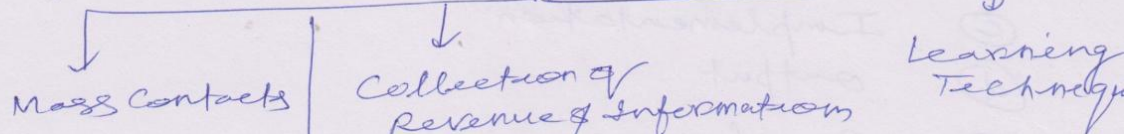 Mass Contacts
Collection of
Revenue & Information
Learning